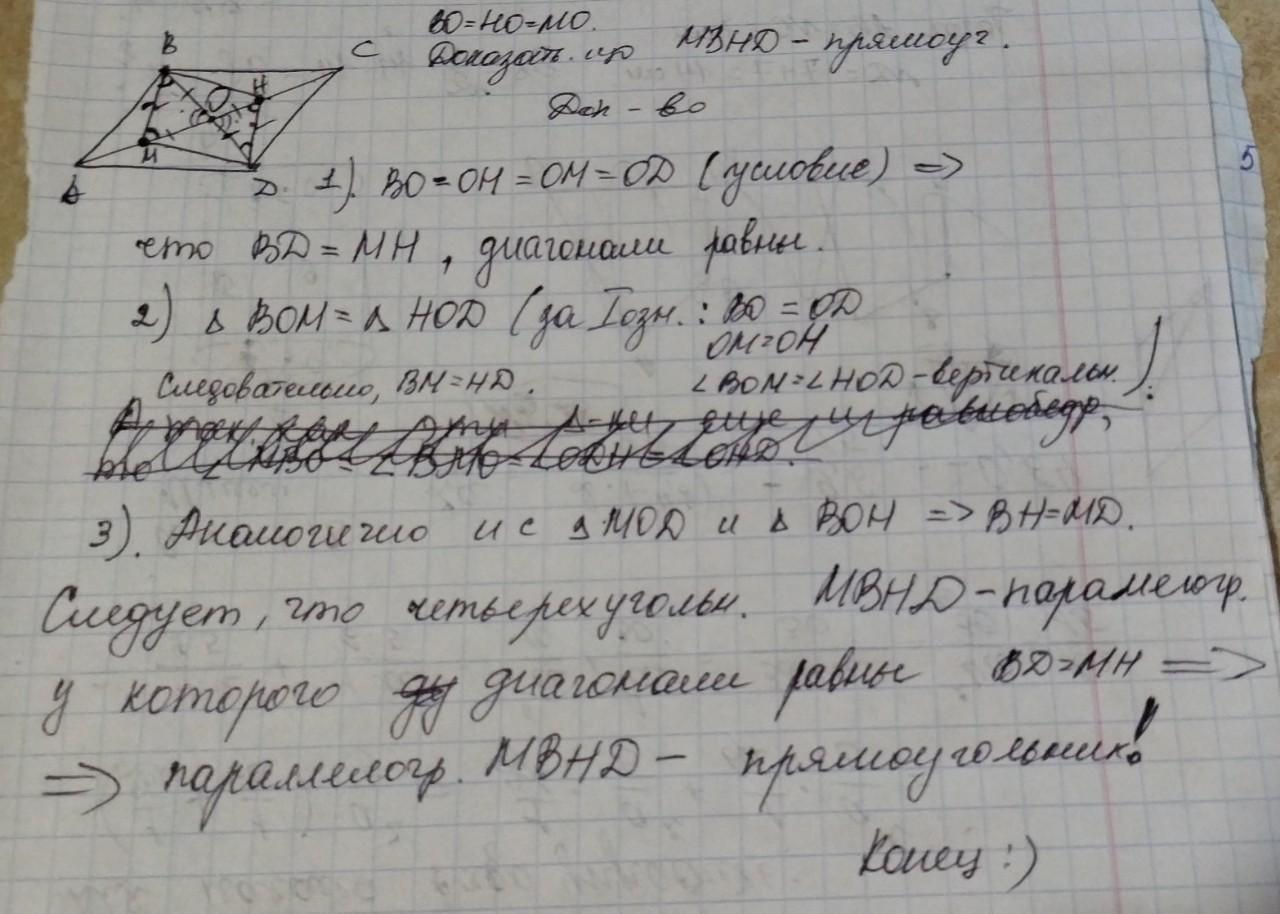 BO=HO=MO.
Доказать что MBHD - прямоуг.
Док - во
B
C
H
O
M
A
D
1). BO=OH=OM=OD (условие) =>
5
что BD = MH , диагонали равны.
2) Δ BOM = Δ HOD (за I озн. : BO = OD
OM=OH
Следовательно, BM=HD. ∠BOM=∠HOD-вертикальн.).
А так как эти Δ-ки еще и равнобедр,
то ∠MBO = ∠BMO=∠ODH=∠OHD.
3). Аналогично и с Δ MOD и Δ BOH => BH=MD.
Следует, что четырехугольн. MBHD-паралелогр.
у которого диагонали равны BD=MH =>
=> параллелогр. MBHD - прямоугольник!
Конец :)